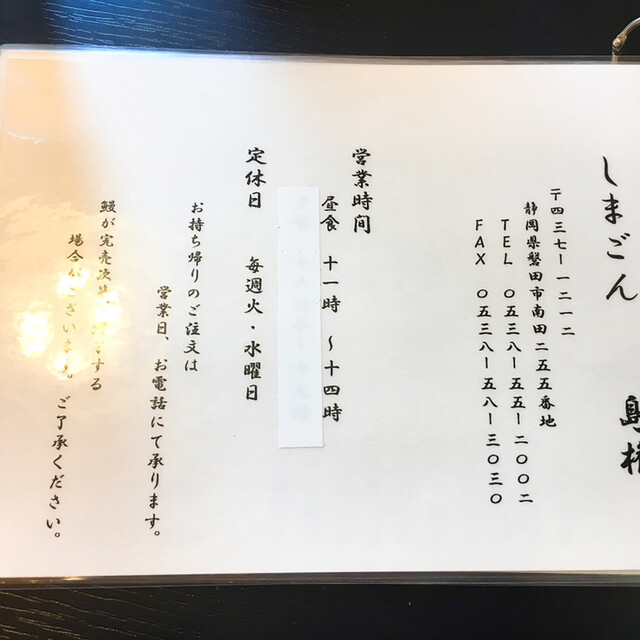 しまごん
島権
〒四三七ー一二一二
静岡県磐田市南田二五五番地
TEL 〇五三八ー五五ー二〇〇二
FAX 〇五三八ー五八ー三〇三〇
営業時間
昼食 十一時 〜十四時
定休日 毎週火・水曜日
お持ち帰りのご注文は
営業日、お電話にて承ります。
鰻が完売次第、 する
場合がございます。ご了承ください。